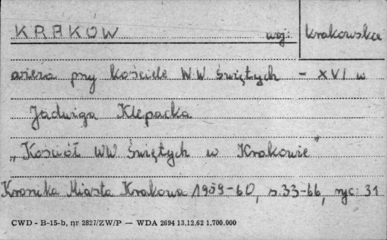 KRAKOW woj: krakowskie
wieża przy kościele WW świętych - XVI w
Jadwiga Klepacka
"Kościół WW świętych w Krakowie"
Kronika Miasta Krakowa 1959-60, s. 33-66, ryc: 31
CWD - B-15-b, nr 2827/ZW/P — WDA 2694 13.12.62 1.700.000